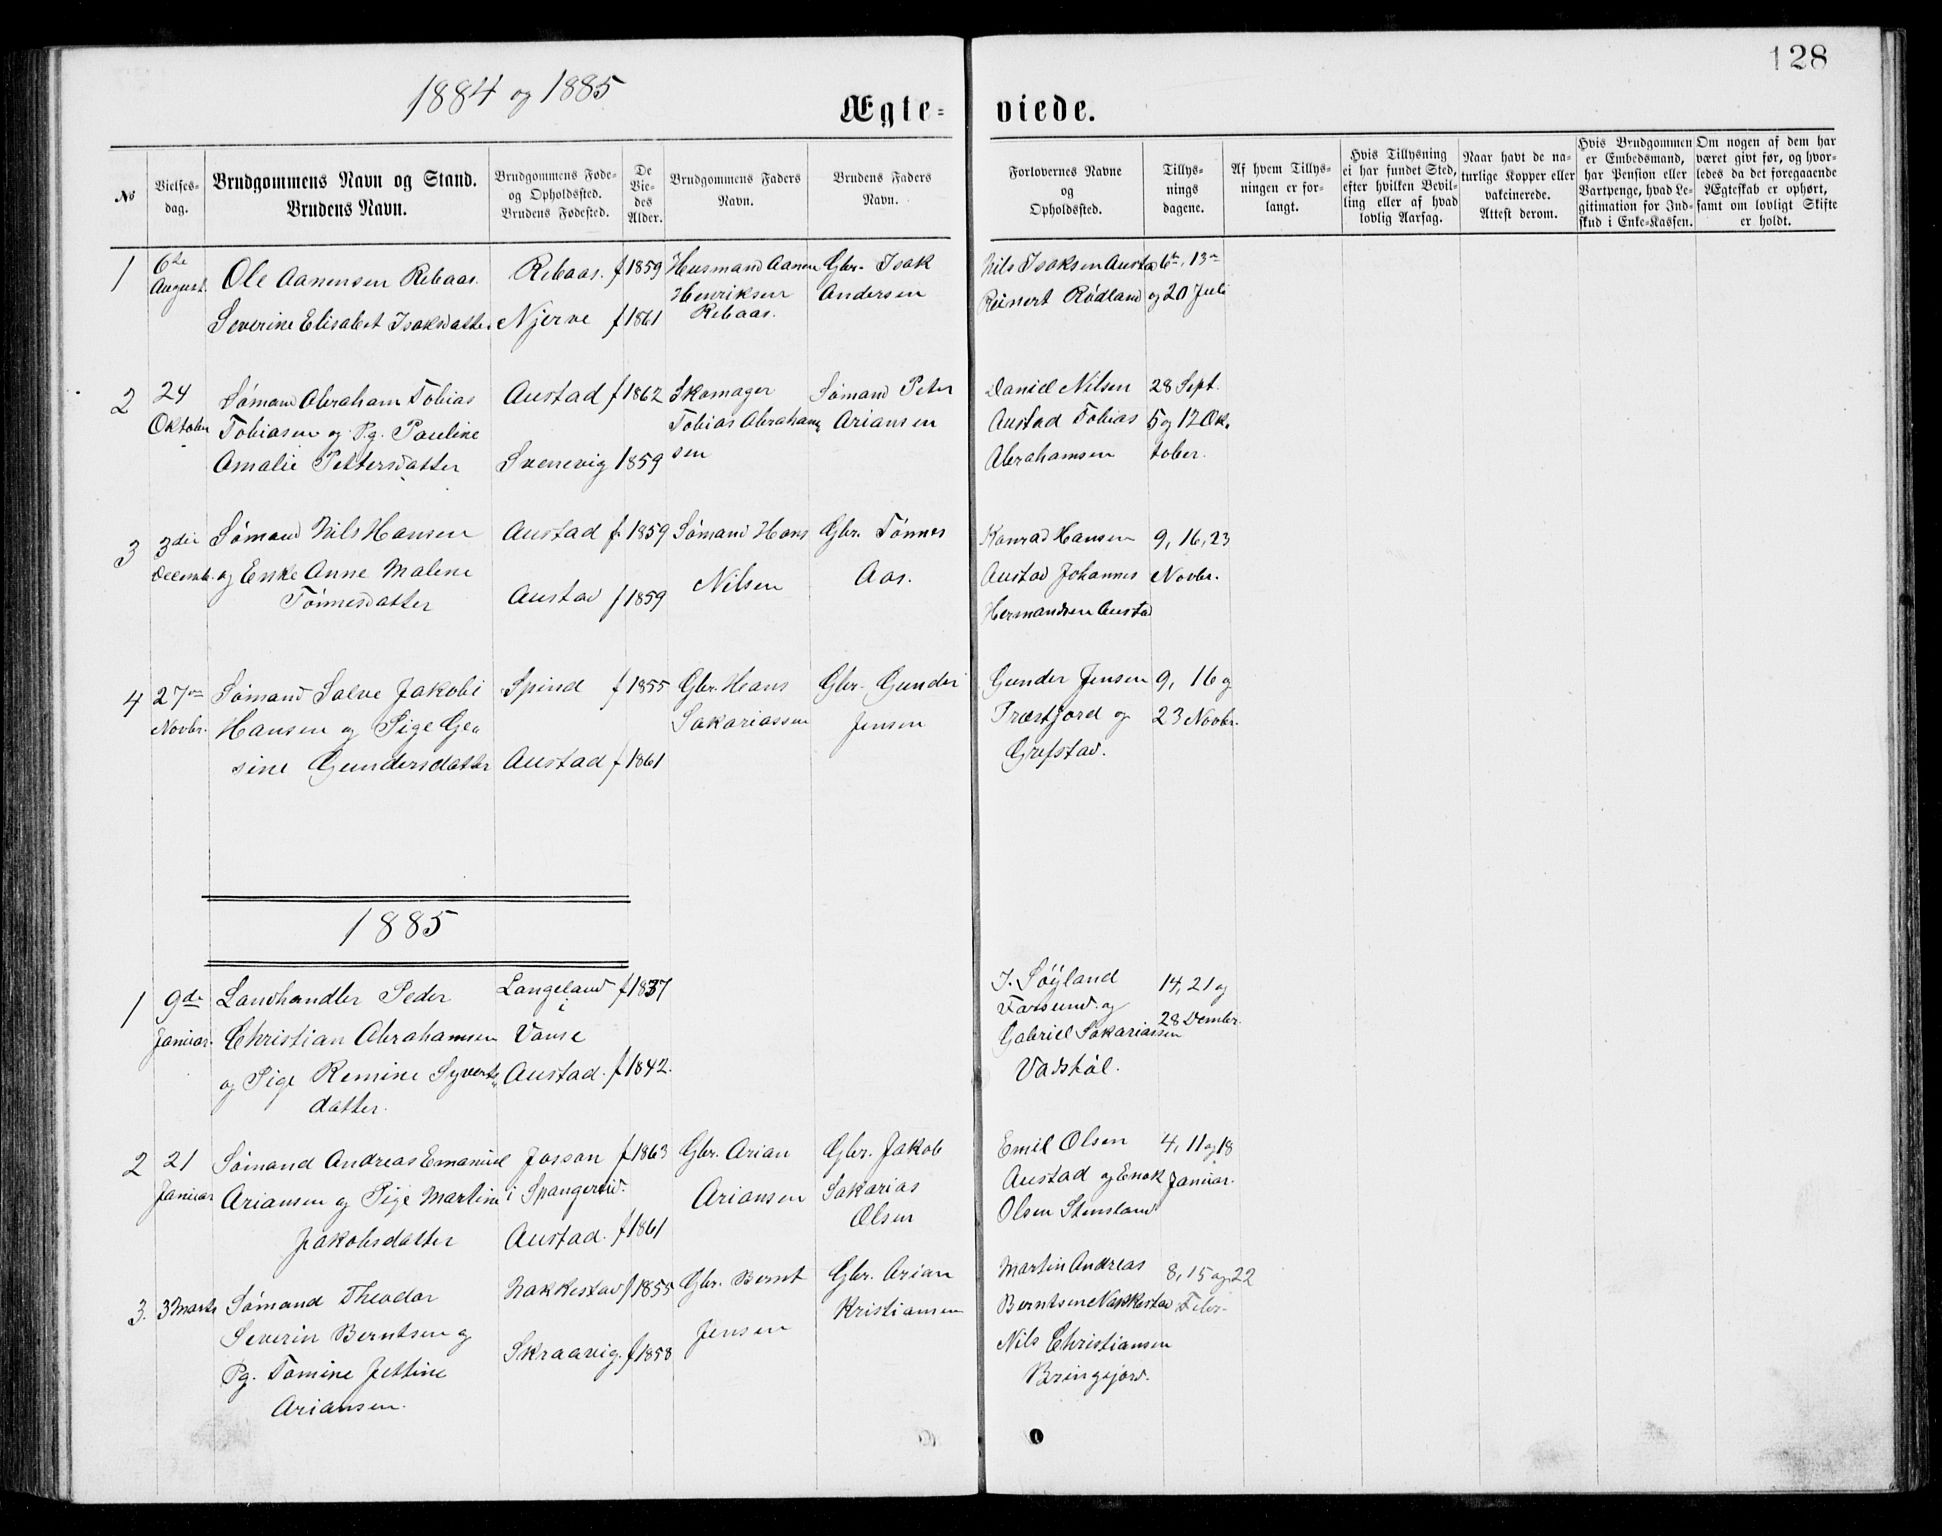 128
1884 og 1885
Ægte= viede.
No
Vielses-
dag.
Brudgommens Navn og Stand.
Brudens Navn.
Brudgommens Føde-
og Opholdssted.
Brudens Fødested.
De
Vie-
des
Alder.
Brudgommens Faders
Navn.
Brudens Faders
Navn.
Forlovernes Navne
og
Opholdssted.
Tillys-
nings
dagene.
Af hvem Tillys-
ningen er for-
langt.
Hvis Tillysning
ei har fundet Sted,
efter hvilken Bevil-
ling eller af hvad
lovlig Aarsag.
Naar havt de na-
turlige Kopper eller
vakcinerede.
Attest derom.
Hvis Brudgommen
er Embedsmand,
har Pension eller
Vartpenge, hvad Le-
gitimation for Ind-
skud i Enke-Kassen.
Om nogen af dem har
været givt før, og hvor-
ledes da det foregaaende
Ægteskab er ophørt,
samt om lovligt Skifte
er holdt.
1
6te
August.
Ole Aanensen Rebaas.
Severine Elisabet Isaksdatter
Rebaas. f 1859
Njerve f 1861
Husmand Aanen
Henriksen
Rebaas.
Gbr. Isak
Andersen
Nils Isaksen Austad
Reinert Rødland
6te, 13de
og 20 Juli
2
24
Oktober
Sømand Abraham Tobias
Tobiasen og Pg. Pauline
Amalie Pettersdatter
Austad f 1862
Svenevig 1859
Skomager
Tobias Abraham
sen
Sømand Peter
Ariansen
Daniel Nilsen
Austad Tobias
Abrahamsen
28 Sept.
5 og 12 Ok.
tober.
3
3die
Decemb.
Sømand Nils Hansen
og Enke Anne Malene
Tønnesdatter
Austad f. 1859
Austad f 1859
Sømand Hans
Nilsen
Gbr. Tønnes
Aas.
Konrad Hansen
Austad Johannes
Hermandsen Austad
9, 16, 23
Novbr.
4
27de
Novbr.
Sømand Salve Jakobi
Hansen og Pige Gea
sine Gundersdatter
Spind f 1855
Austad f 1861
Gbr. Hans
Sakariassen
Gbr. Gunder
Jensen
Gunder Jensen
Træstfjord og
Grefstad.
9, 16 og
23 Novbr.
1885
1
9de
Januar.
Landhandler Peder
Christian Abrahamsen
og Pige Remine Syverts
datter.
Langeland f 1837
i
Vanse
Austad. f 1842.
I. Søyland
Farsund. og
Gabriel Sakariassen
Vadskøl.
14, 21 og
28 Decmbr.
2
21
Januar
Sømand Andreas Emanuel
Ariansen og Pige Martine
Jakobsdatter
Jaasan f 1863
i Spangereid.
Austad. f 1861
Gbr. Arian
Ariansen
Gbr. Jakob
Sakarias
Olsen
Emil Olsen
Austad og Enok
Olsen Stensland
4, 11 og 18
Januar.
3.
3 Marts
Sømand Theodor
Severin Berntsen og
Pg. Tomine Jettine
Ariansen.
Nakkestad f 1855
Skraavig. f 1858
Gbr. Bernt
Jensen
Gbr. Arian
Kristiansen
Martin Andreas
Berntsen Nakkestad
Nils Christiansen
Bringsjord.
8, 15 og 22
Febr.